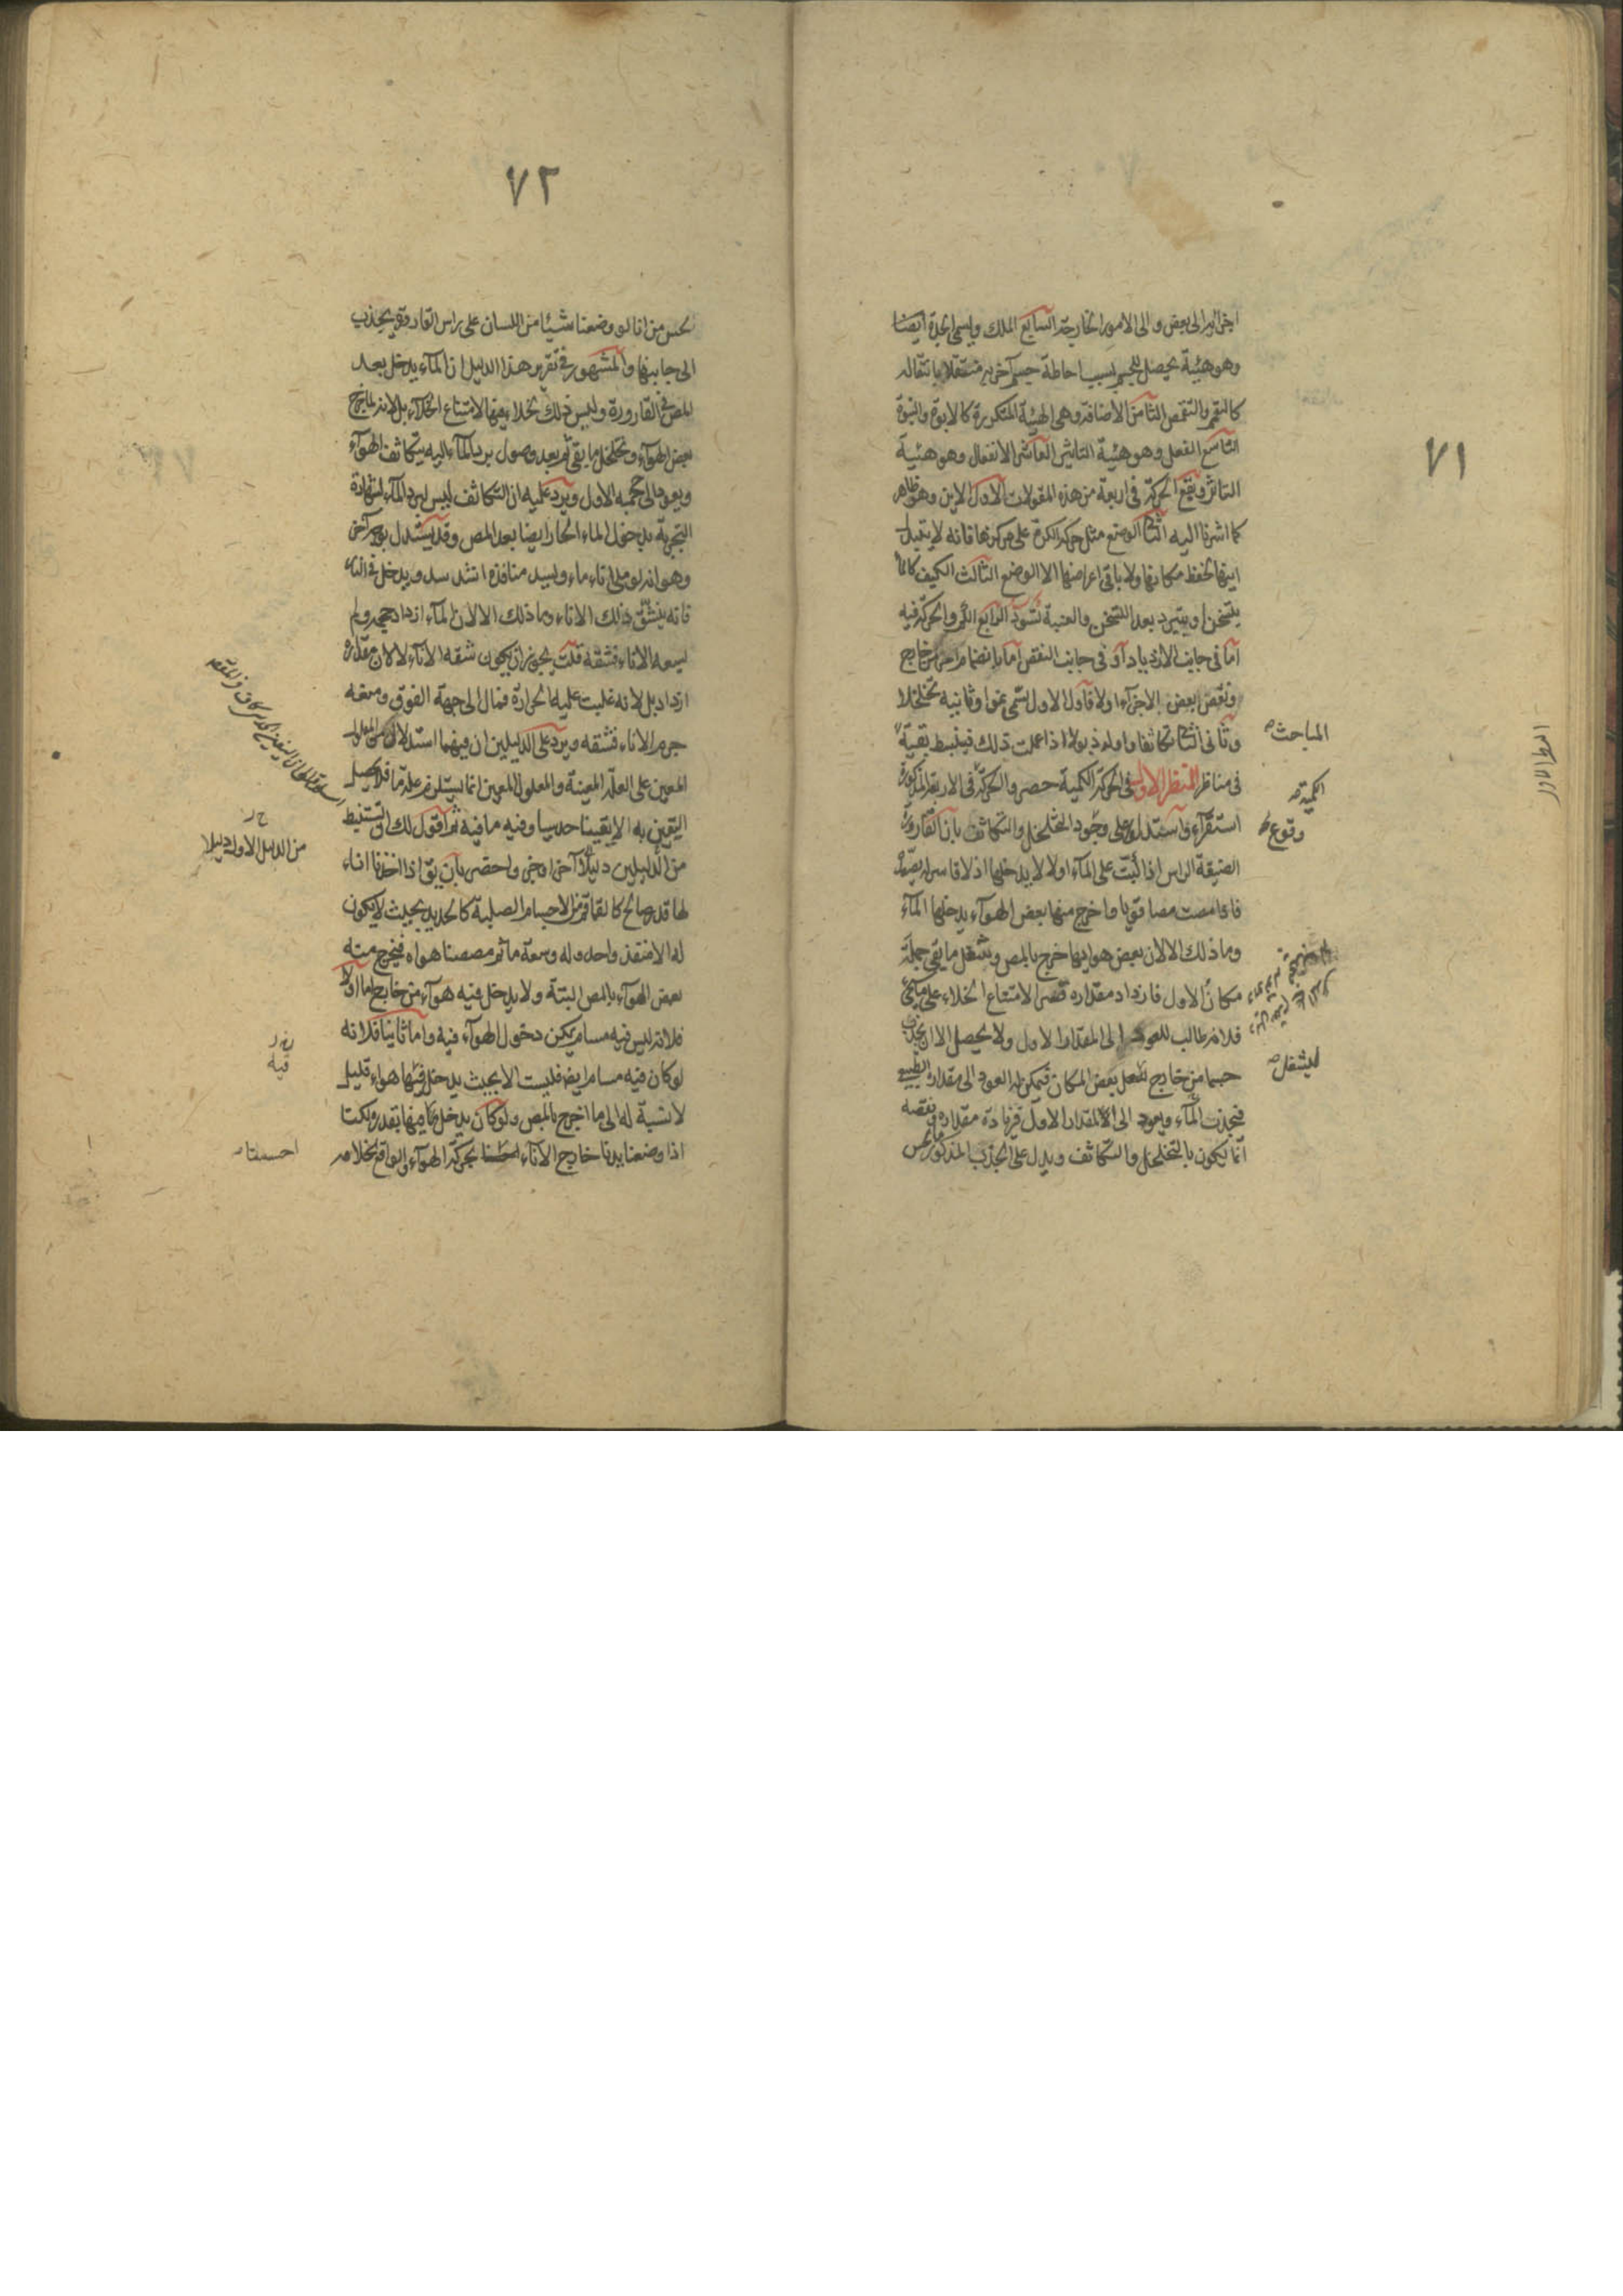 ٧١
اجزائه الى بعض والى الامور الخارجة السابع الملك ويسمى الجدة ايضا
وهو هيئة يحصل للجسم بسبب احاطة جسم آخر به منتقلا بانتقاله
كالتعمم والتقمص الثامن الاضافة وهى الهيئة المتكررة كالابوة والبنوة
التاسع الفعل وهو هيئة التاثير العاشر الانفعال وهو هيئة
التاثر ويقع الحركة فى اربعة من هذه المقولات الاول الاين وهو ظاهر
كما اشرنا اليه الثانى الوضع مثل حركة الكرة على مركزها فانه لا يتبدل
اينها لحفظ مكانها ولا باقى اعراضها الا الوضع الثالث الكيف كالماء
يتسخن او يتبرد بعد التسخن والعنبة تسود الرابع الكم والحركة فيه
اما فى جانب الازدياد او فى جانب النقص اما بانضمام اخر من خارج
ونقص بعض الاجزاء اولا فاول الاول يسمى نموا وثانيه تخلخلا
وثانى الثانى تكاثفا واوله ذبولا اذا عملت ذلك فينبسط بقية
المباحث
فى مناظر المنظر الاول فى الحركة الكمية حصر والحركة فى الاربعة المذكورة
الكمية
استقراء واستدلوا على وجود التخلخل والتكاثف بان القارورة
وقوع
الضيقة الراس اذا كبت على الماء اولا لا يدخلها اذ لا قاسر
فاذا مصت مصا قويا واخرج منها بعض الهواء يدخلها الماء
وما ذلك الا لان بعض هوائها خرج بالمص وشغل ما بقى جملة
مكان الاول فازداد مقداره قسرا لامتناع الخلاء على
فلانه طالب للعود الى المقدار الاول ولا يحصل الا ان يجذب
جسما من خارج يشغل بعض المكان فيمكن له العود الى مقداره الطبيعى
ليشغل
فيجذب الماء ويعود الى المقدار الاول فزيادة مقداره ونقصه
انما يكون بالتخلخل والتكاثف ويدل على الجذب المذكور
٧٢
نحس من انا لو وضعنا شيئا من اللسان على راس القارورة يجذب
الى جانبها والمشهور فى تقرير هذا الدليل ان الماء يدخل بعد
المص فى القارورة وليس ذلك لخلاء فيها لامتناع الخلاء بل لانه لما خرج
بعض الهواء وتخلخل ما بقى ثم بعد وصول برد الماء اليه يتكاثف الهواء
ويعود الى حجمه الاول ويرد عليه ان التكاثف ليس لبرد الماء لشهادة
التجربة بدخول الماء الحار ايضا بعد المص وقد يستدل بوجه آخر
وهو انه لو ملئ اناء ماء ويسد منافذه اشد سد ويدخل فى النار
فانه ينشق ذلك الاناء وما ذلك الا لان الماء ازداد حجمه ولم
يسعه الاناء فشقه قلت يجوز ان يكون شقه الاناء لا لان مقداره
ازداد بل لانه غلبت عليه الحرارة فمال الى جهة الفوق ومنعه
جرم الاناء فشقه ويرد على الدليلين ان فيهما استدلالا من المعلول
المعين على العلة المعينة والمعلول المعين انما يستلزم علة ما فلا يحصل
اليقين به الا يقينا حدسيا وفيه ما فيه ثم اقول لك ان تستنبط
من الدليلين دليلا آخر اوجز واخصر بان يق اذا اخذنا اناء
من الدليل الاول دليلا
لها قدر صالح كالقماقم من الاجسام الصلبة كالحديد بحيث لا يكون
له الا منفذ واحد وله وسعة ما ثم مصصنا هواه فيخرج منه
بعض الهواء بالمص البتة ولا يدخل فيه هواء من خارج اما اولا
فلانه ليس فيه مسام يمكن دخول الهواء فيه واما ثانيا فلانه
لو كان فيه مسام ايضا فليست الا بحيث يدخل فيها هواء قليل
فيه
لا نسبة له الى ما اخرج بالمص ولو كان يدخل فيها بقدره لكنا
اذا وضعنا يدنا خارج الاناء احسسنا بحركة الهواء والواقع بخلافه
احسسنا